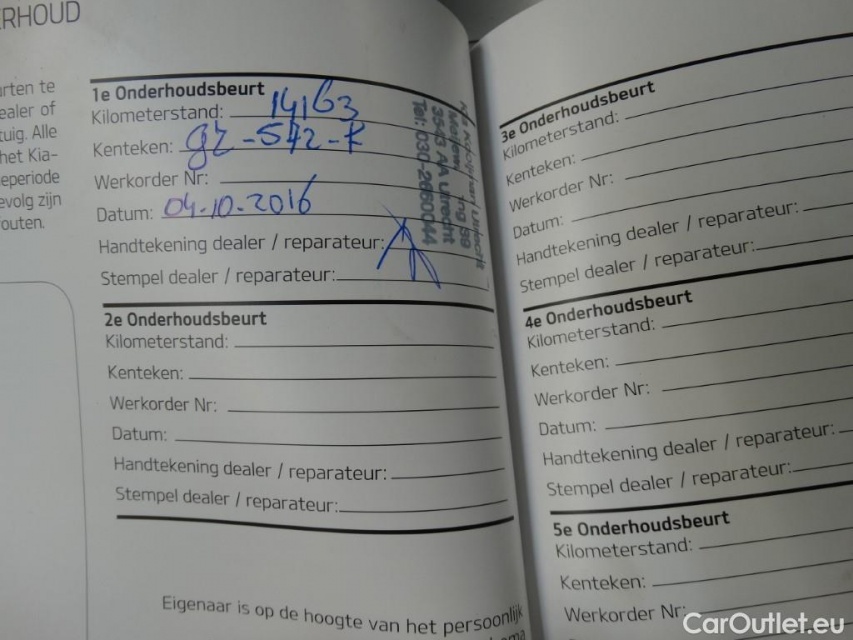 ERHOUD
arten te
ealer of
tuig. Alle
het Kia-
eperiode
evolg zijn
outen.
1e Onderhoudsbeurt
Kilometerstand: 14163
Kenteken: gz-542-k
Werkorder Nr:
Datum: 04.10.2016
Handtekening dealer / reparateur:
Stempel dealer / reparateur:
3543 AA Utrecht
Tel: 030-2660044
2e Onderhoudsbeurt
Kilometerstand:
Kenteken:
Werkorder Nr:
Datum:
Handtekening dealer / reparateur:
Stempel dealer / reparateur:
Eigenaar is op de hoogte van het persoonlijk
3e Onderhoudsbeurt
Kilometerstand:
Kenteken:
Werkorder Nr:
Datum:
Handtekening dealer / reparateur:
Stempel dealer / reparateur:
4e Onderhoudsbeurt
Kilometerstand:
Kenteken:
Werkorder Nr:
Datum:
Handtekening dealer / reparateur:
Stempel dealer / reparateur:
5e Onderhoudsbeurt
Kilometerstand:
Kenteken:
Werkorder Nr:
CarOutlet.eu